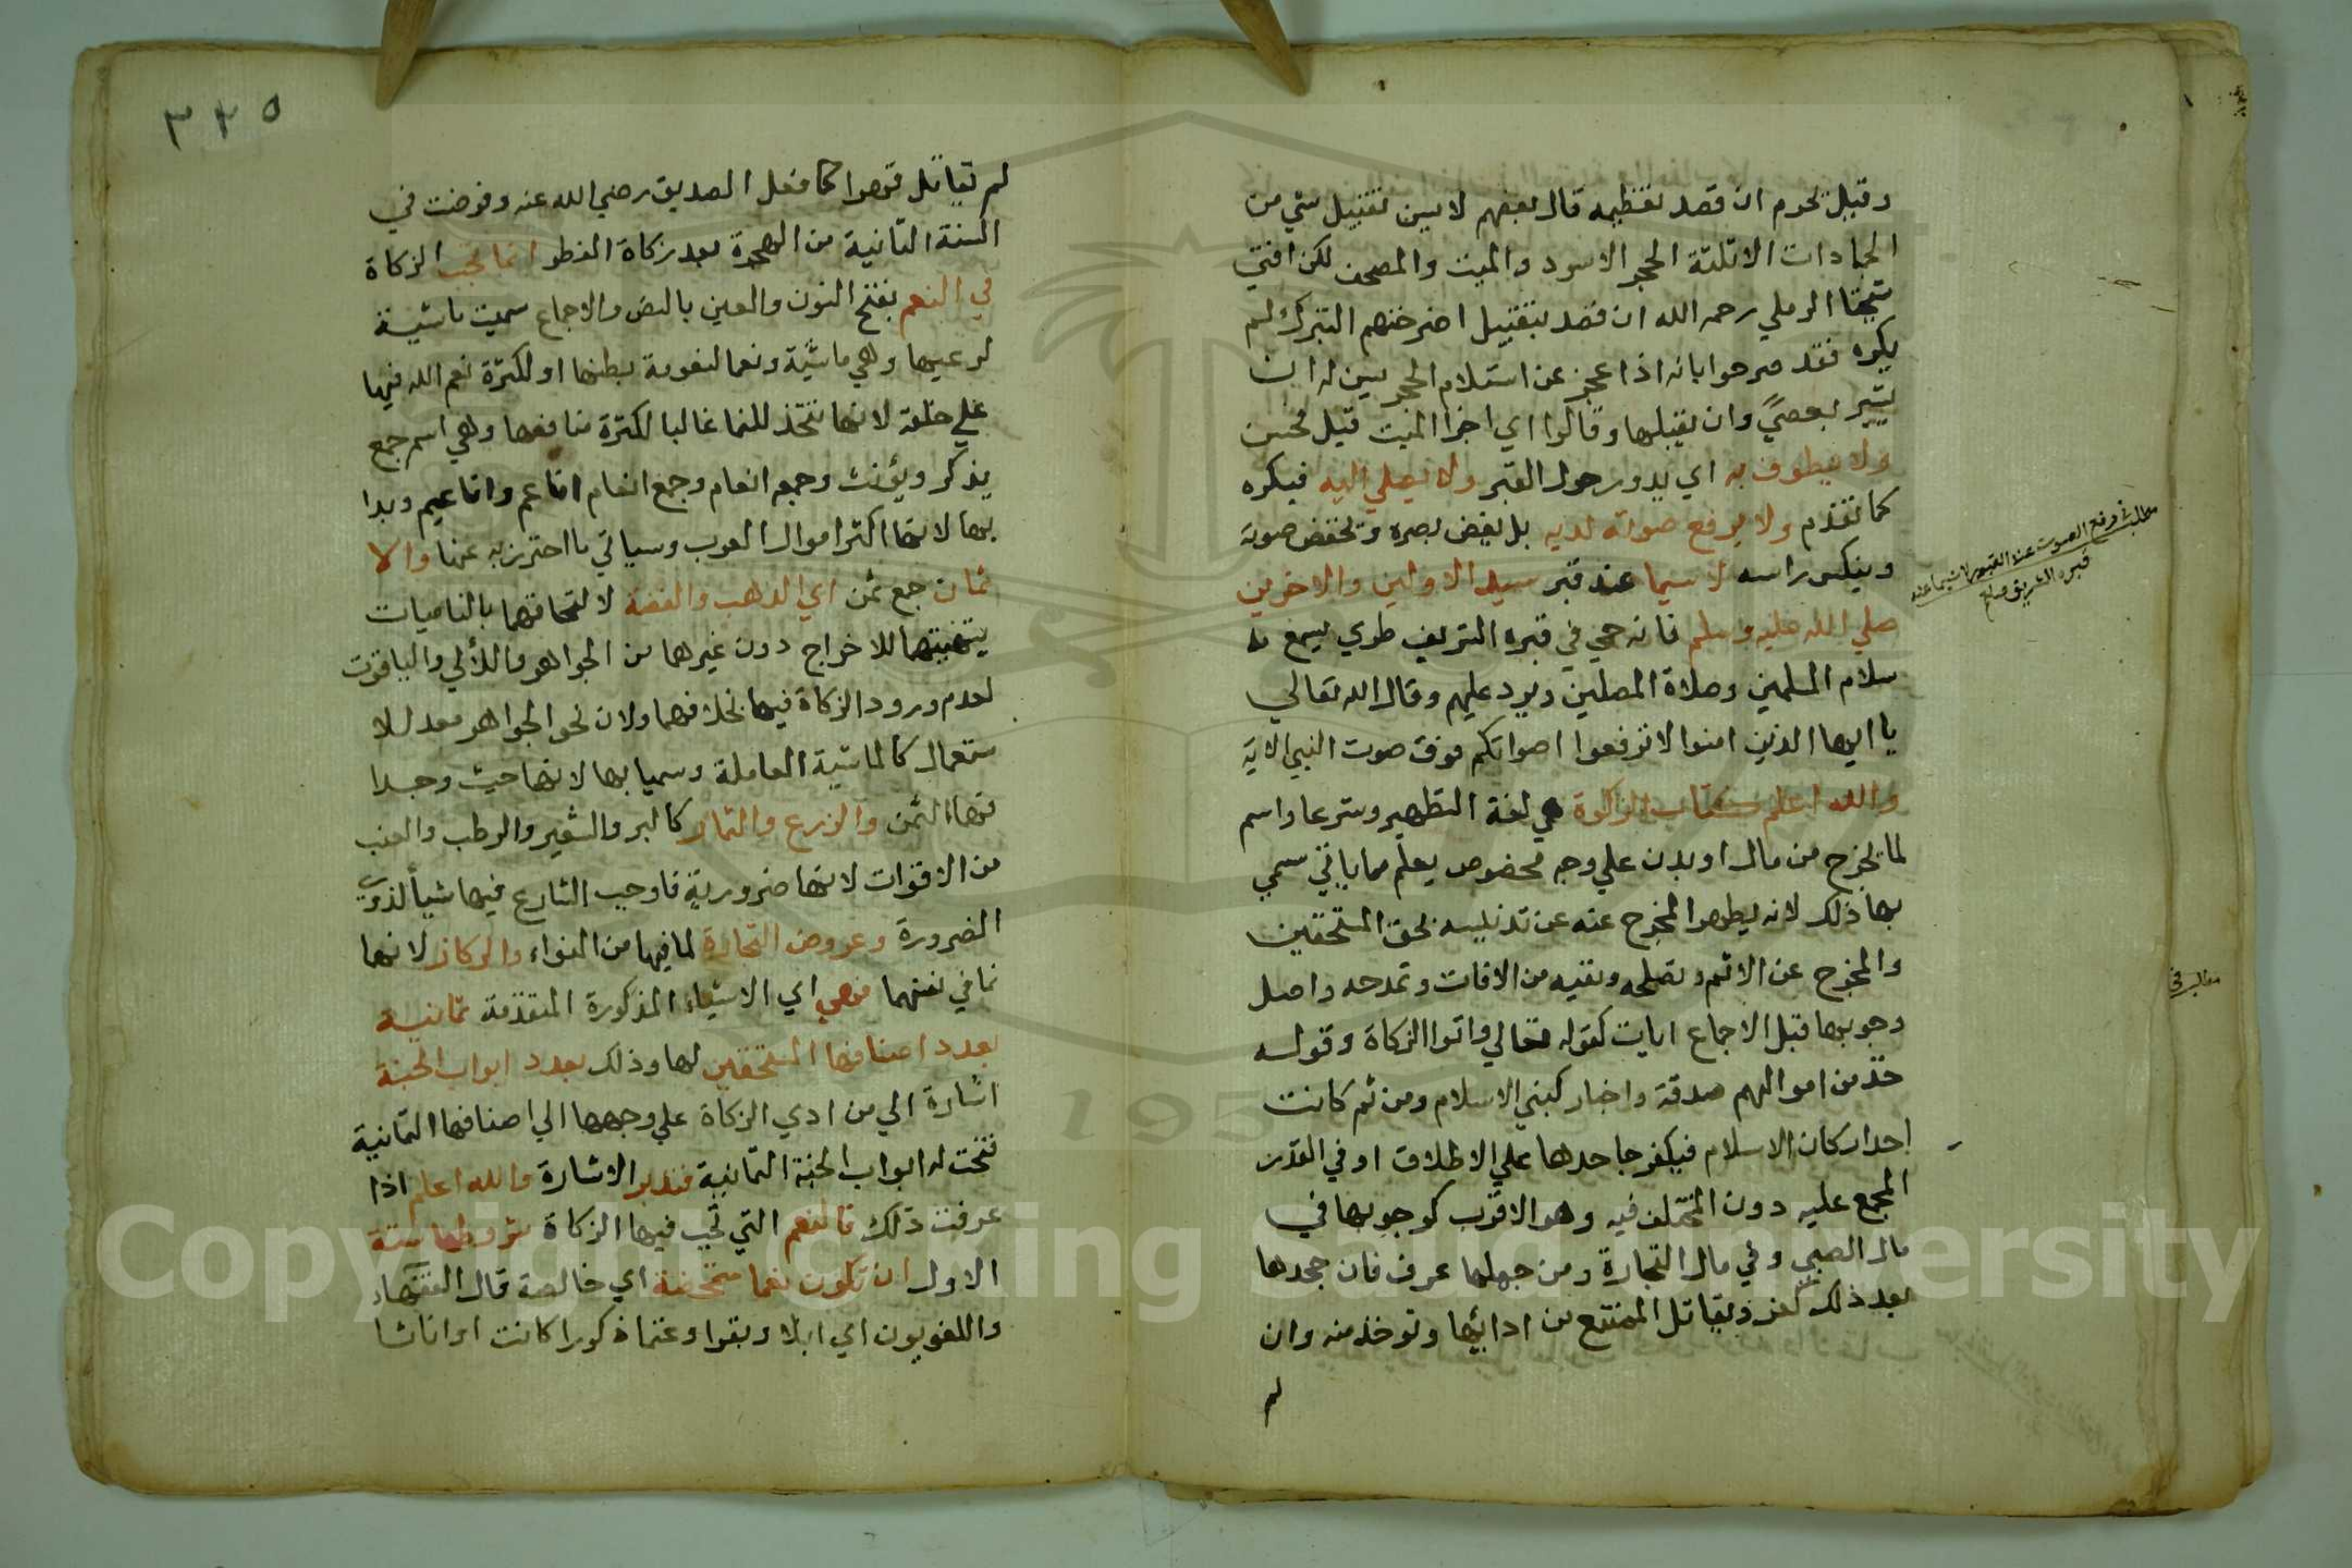 وقيل يحرم ان قصد تعظيمه قال بعضهم لا يسن تقبيل شي من
الجمادات الا ثلثة الحجر الاسود والميت والمصحف لكن افتي
شيخنا الرملي رحمه الله ان قصد بتقبيل اضرحتهم التبرك لم
يكره فقد صرحوا بانه اذا عجز عن استلام الحجر يسن له ان
يشير بعصي وان يقبلها وقالوا اي اجزا الميت قبل فحسن
ولا يطوف به اي يدور حول القبر ولا يصلي اليه فيكره
كما تقدم ولا يرفع صوته لديه بل يغض بصره ويخفض صوته
وينكس راسه لا سيما عند قبر سيد الاولين والاخرين
صلي الله عليه وسلم فانه حي في قبره الشريف طري يسمع
سلام المسلمين وصلاة المصلين ويرد عليهم وقال الله تعالي
يا ايها الذين امنوا لا ترفعوا اصواتكم فوق صوت النبي الاية
والله اعلم كتاب الزكوة هي لغة التطهير وشرعا اسم
لما يخرج من مال او بدن علي وجه مخصوص يعلم مما ياتي سمي
بها ذلك لانه يطهر المخرج عنه عن تدنيسه بحق المستحقين
والمخرج عن الاثم وتصلحه وتقيه من الافات وتمدحه واصل
وجوبها قبل الاجماع ايات كقوله تعالي واتوا الزكاة وقوله
خذ من اموالهم صدقة واخبار كبني الاسلام ومن ثم كانت
احد اركان الاسلام فيكفر جاحدها علي الاطلاق او في القدر
المجمع عليه دون المختلف فيه وهو الاقرب كوجوبها في
مال الصبي وفي مال التجارة ومن جهلها عرف فان جحدها
بعد ذلك كفر ويقاتل الممتنع من ادائها وتوخذ منه وان
لم
مطلب في رفع الصوت عند القبور لا سيما عند
قبره الشريف
٣٢٥
لم يقاتل قهرا كما فعل الصديق رضي الله عنه وفرضت في
السنة الثانية من الهجرة بعد زكاة الفطر انما تجب الزكاة
في النعم بفتح النون والعين بالنص والاجماع سميت ماشية
لرعيها وهي ماشية ونعما لنعومة بطنها او لكثرة نعم الله فيها
علي خلقه لانها تتخذ للنما غالبا لكثرة منافعها وهي اسم جمع
يذكر ويؤنث وجمعه انعام وجمع انعام اناعم واناعيم وبدا
بها لانها اكثر اموال العرب وسياتي ما احترز به عنها والا
ثمان جمع ثمن اي الذهب والفضة لا لتحاقهما بالناميات
بتهيئتهما للاخراج دون غيرهما من الجواهر واللألي والياقوت
لعدم ورود الزكاة فيها بخلافهما ولان نحو الجواهر معد للا
ستعمال كالماشية العاملة وسميا بها لانهما حيث وجدا
فهما الثمن والزرع والثمار كالبر والشعير والرطب والعنب
من الاقوات لانها ضرورية فاوجب الشارع فيها شيأ لذوي
الضرورة وعروض التجارة لما فيها من النواء والركاز لانها
نما في نفسها فهي اي الاشياء المذكورة المتقدمة ثمانية
بعدد اصنافها المستحقين لها وذلك بعدد ابواب الجنة
اشارة الي من ادي الزكاة علي وجهها الي اصنافها الثمانية
فتحت له ابواب الجنة الثمانية فتدبر الاشارة والله اعلم اذا
عرفت ذلك فالنعم التي تجب فيها الزكاة شروطها ستة
الاول ان تكون نعما متمحضة اي خالصة قال الفقهاء
واللغويون اي ابلا وبقرا وغنما ذكورا كانت او اناثا
Copyright © King Saud University
195